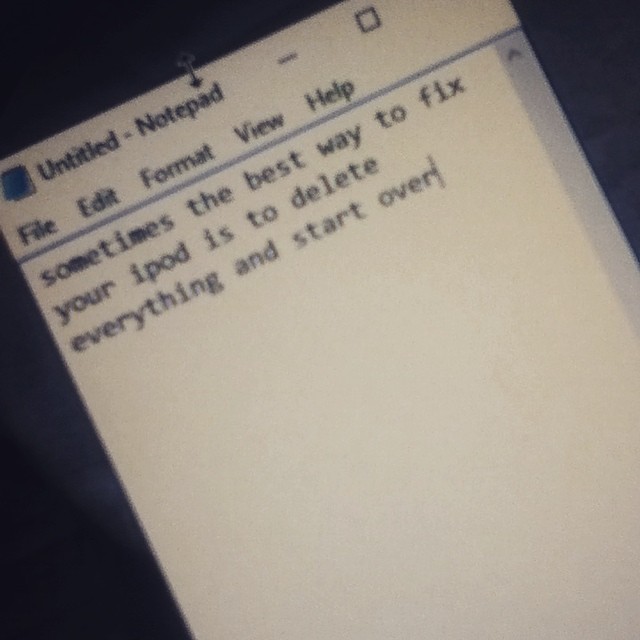 Untitled - Notepad
File Edit Format View Help
sometimes the best way to fix
your ipod is to delete
everything and start over